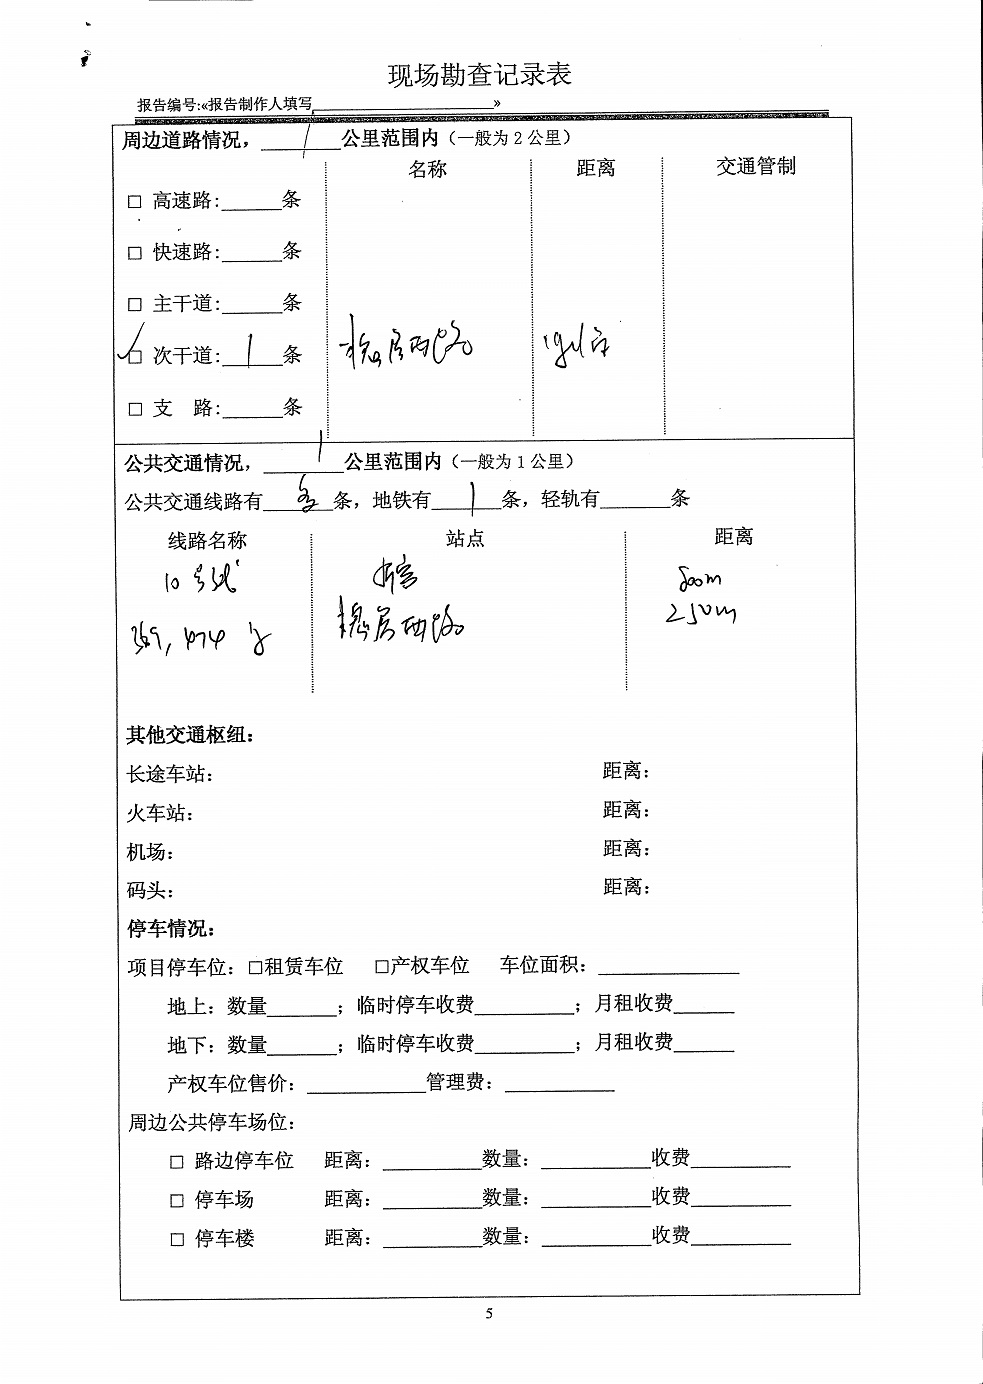 现场勘查记录表
报告编号:«报告制作人填写________________»
周边道路情况，___1___公里范围内（一般为2公里）
名称 距离 交通管制
□ 高速路:______条
□ 快速路:______条
□ 主干道:______条
☑ 次干道:__1__条 路
□ 支 路:______条
公共交通情况，___1___公里范围内（一般为1公里）
公共交通线路有___多___条，地铁有___1___条，轻轨有_______条
线路名称 站点 距离
10号线 800m
474 等 250m
其他交通枢纽：
长途车站： 距离：
火车站： 距离：
机场： 距离：
码头： 距离：
停车情况：
项目停车位：□租赁车位 □产权车位 车位面积：______________
地上：数量_______；临时停车收费__________；月租收费______
地下：数量_______；临时停车收费__________；月租收费______
产权车位售价：____________管理费：___________
周边公共停车场位：
□ 路边停车位 距离：__________数量：___________收费__________
□ 停车场 距离：__________数量：___________收费__________
□ 停车楼 距离：__________数量：___________收费__________
5